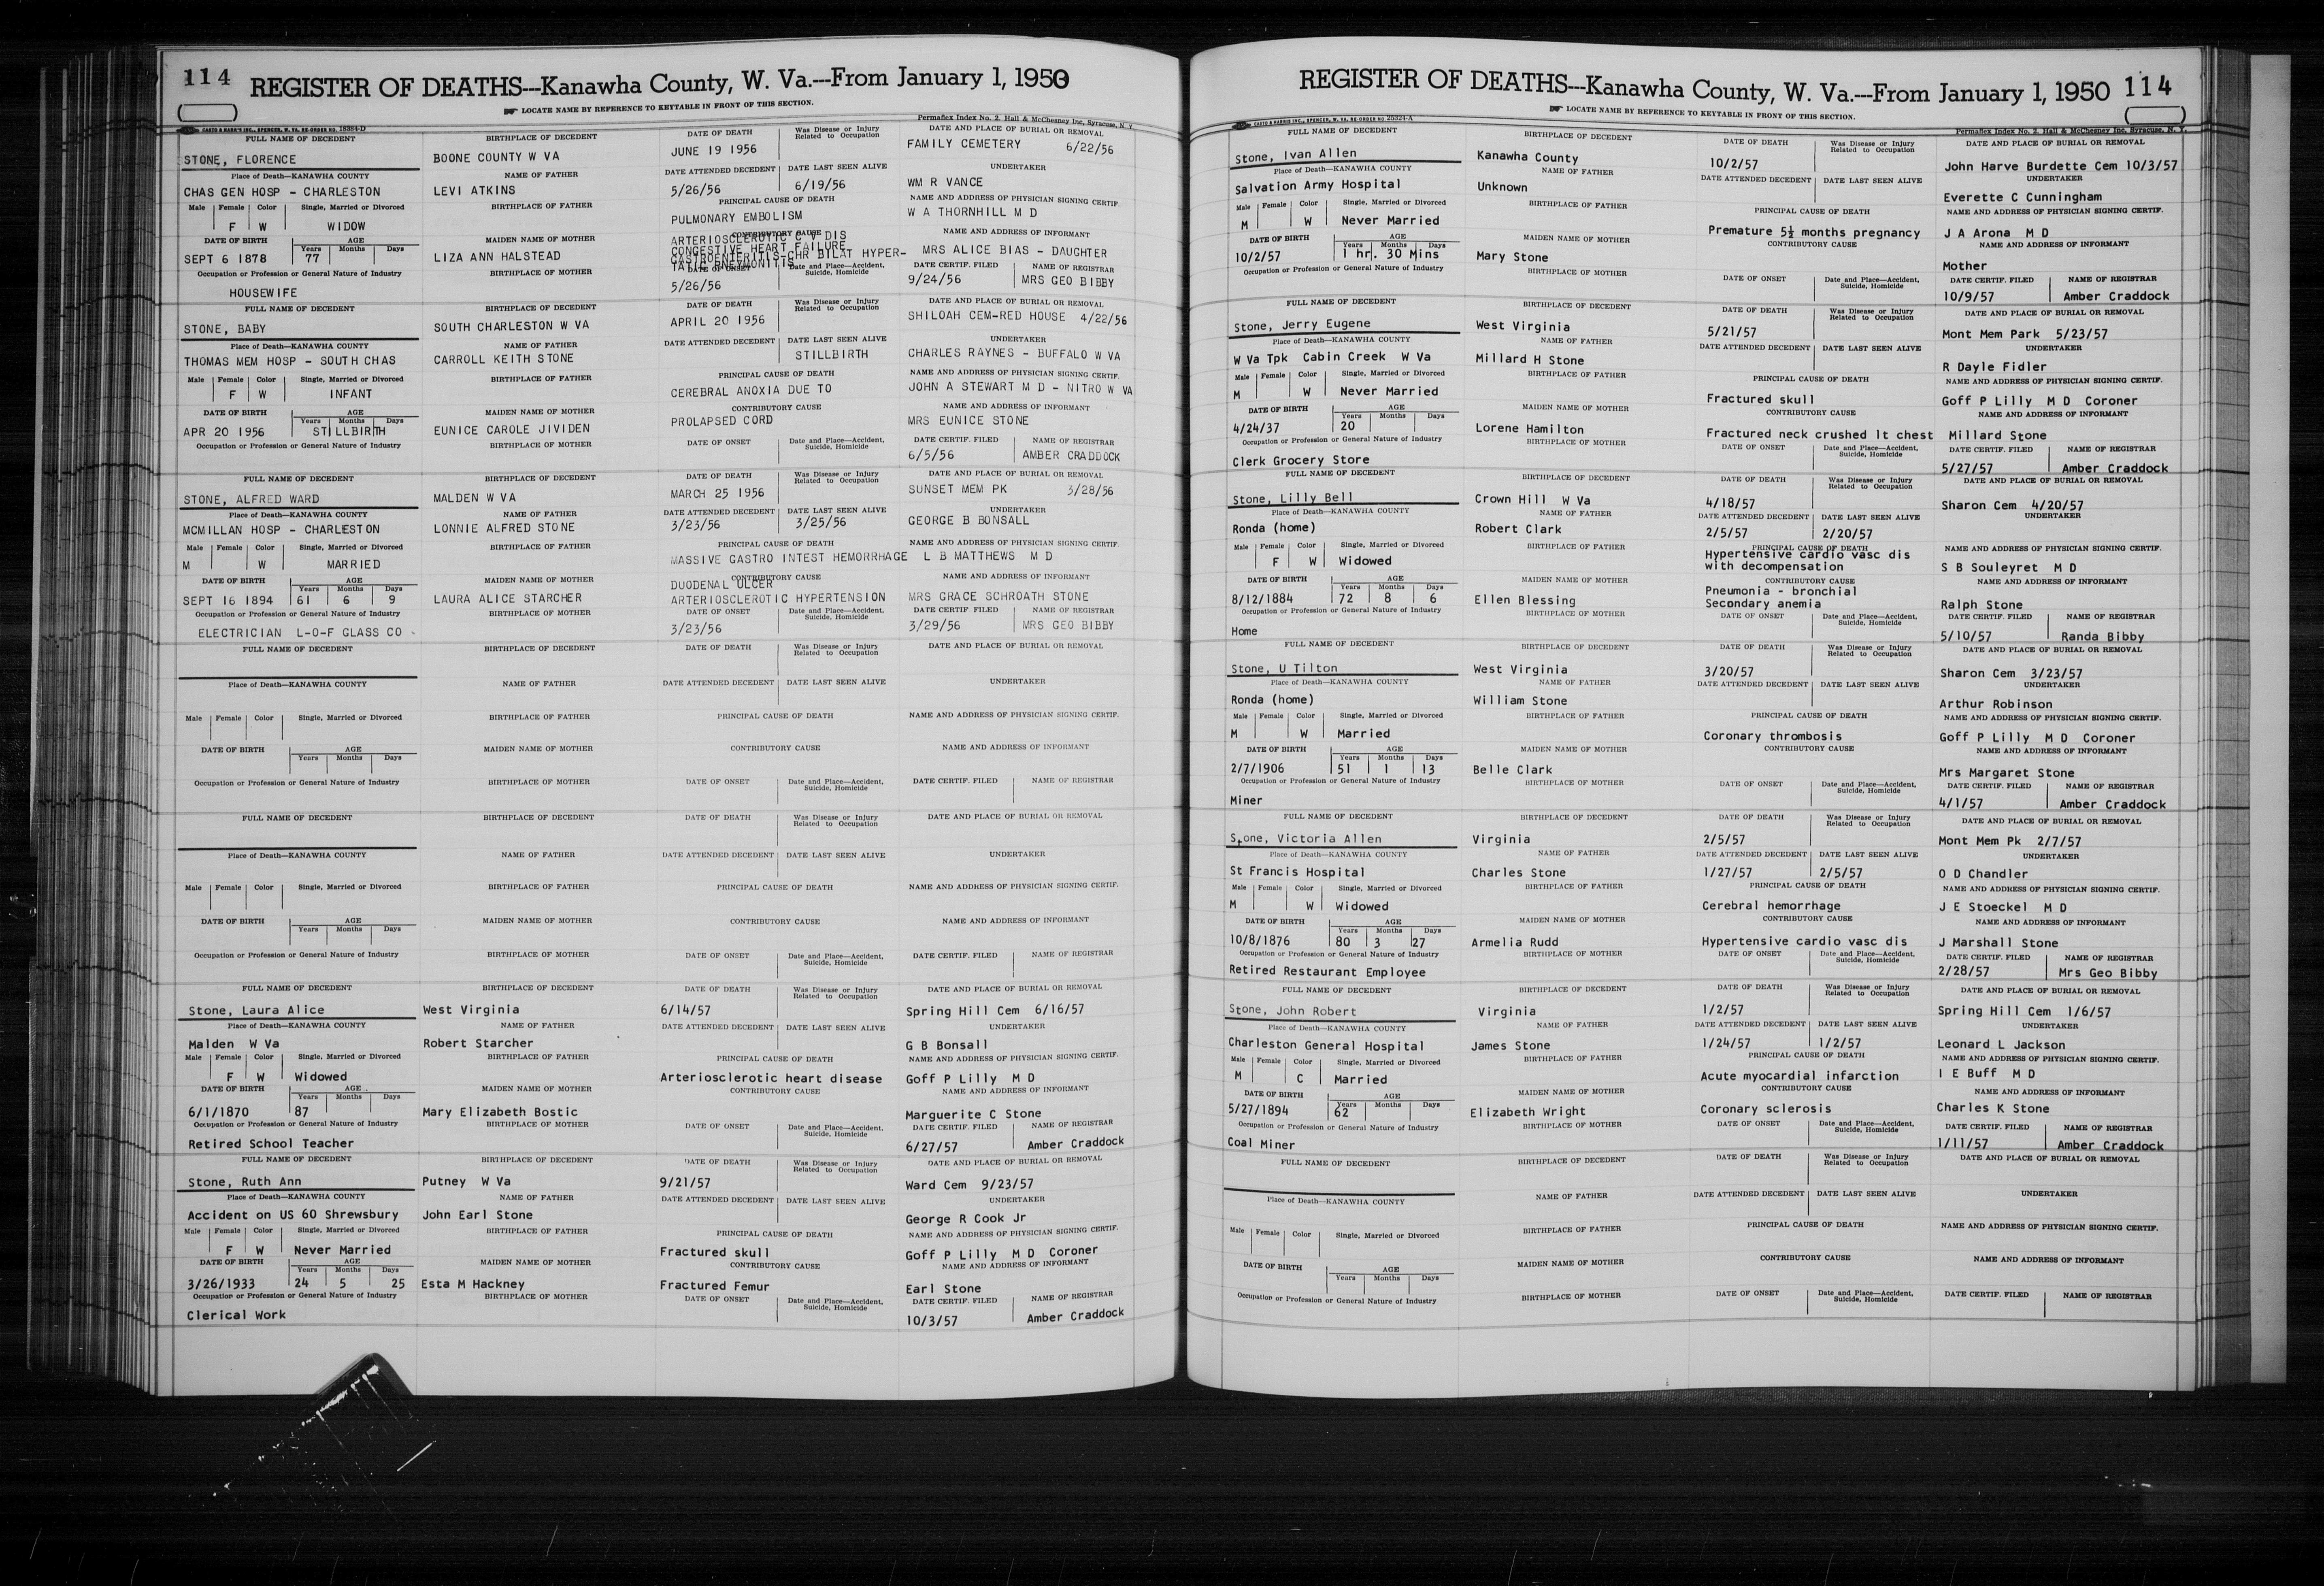 114 REGISTER OF DEATHS---Kanawha County, W. Va.---From January 1, 1950
LOCATE NAME BY REFERENCE TO KEYTABLE IN FRONT OF THIS SECTION.
CASTO & HARRIS INC., SPENCER, W. VA. RE-ORDER NO. 18384-D Permaflex Index No. 2. Hall & McChesney Inc, Syracuse, N. Y.
FULL NAME OF DECEDENT BIRTHPLACE OF DECEDENT DATE OF DEATH Was Disease or Injury Related to Occupation DATE AND PLACE OF BURIAL OR REMOVAL
STONE, FLORENCE BOONE COUNTY W VA JUNE 19 1956 FAMILY CEMETERY 6/22/56
Place of Death—KANAWHA COUNTY NAME OF FATHER DATE ATTENDED DECEDENT DATE LAST SEEN ALIVE UNDERTAKER
CHAS GEN HOSP - CHARLESTON LEVI ATKINS 5/26/56 6/19/56 WM R VANCE
Male Female Color Single, Married or Divorced BIRTHPLACE OF FATHER PRINCIPAL CAUSE OF DEATH NAME AND ADDRESS OF PHYSICIAN SIGNING CERTIF.
F W WIDOW PULMONARY EMBOLISM W A THORNHILL M D
DATE OF BIRTH AGE Years Months Days MAIDEN NAME OF MOTHER CONTRIBUTORY CAUSE NAME AND ADDRESS OF INFORMANT
ARTERIOSCLEROTIC C V DIS
CONGESTIVE HEART FAILURE
SEPT 6 1878 77 LIZA ANN HALSTEAD GASTROENTERITIS-CHR BILAT HYPER- MRS ALICE BIAS - DAUGHTER
TATIC PNEUMONITIS
Occupation or Profession or General Nature of Industry BIRTHPLACE OF MOTHER DATE OF ONSET Date and Place—Accident, Suicide, Homicide DATE CERTIF. FILED NAME OF REGISTRAR
HOUSEWIFE 5/26/56 9/24/56 MRS GEO BIBBY
FULL NAME OF DECEDENT BIRTHPLACE OF DECEDENT DATE OF DEATH Was Disease or Injury Related to Occupation DATE AND PLACE OF BURIAL OR REMOVAL
STONE, BABY SOUTH CHARLESTON W VA APRIL 20 1956 SHILOAH CEM-RED HOUSE 4/22/56
Place of Death—KANAWHA COUNTY NAME OF FATHER DATE ATTENDED DECEDENT DATE LAST SEEN ALIVE UNDERTAKER
THOMAS MEM HOSP - SOUTH CHAS CARROLL KEITH STONE STILLBIRTH CHARLES RAYNES - BUFFALO W VA
Male Female Color Single, Married or Divorced BIRTHPLACE OF FATHER PRINCIPAL CAUSE OF DEATH NAME AND ADDRESS OF PHYSICIAN SIGNING CERTIF.
F W INFANT CEREBRAL ANOXIA DUE TO JOHN A STEWART M D - NITRO W VA
DATE OF BIRTH AGE Years Months Days MAIDEN NAME OF MOTHER CONTRIBUTORY CAUSE NAME AND ADDRESS OF INFORMANT
APR 20 1956 STILLBIRTH EUNICE CAROLE JIVIDEN PROLAPSED CORD MRS EUNICE STONE
Occupation or Profession or General Nature of Industry BIRTHPLACE OF MOTHER DATE OF ONSET Date and Place—Accident, Suicide, Homicide DATE CERTIF. FILED NAME OF REGISTRAR
6/5/56 AMBER CRADDOCK
FULL NAME OF DECEDENT BIRTHPLACE OF DECEDENT DATE OF DEATH Was Disease or Injury Related to Occupation DATE AND PLACE OF BURIAL OR REMOVAL
STONE, ALFRED WARD MALDEN W VA MARCH 25 1956 SUNSET MEM PK 3/28/56
Place of Death—KANAWHA COUNTY NAME OF FATHER DATE ATTENDED DECEDENT DATE LAST SEEN ALIVE UNDERTAKER
MCMILLAN HOSP - CHARLESTON LONNIE ALFRED STONE 3/23/56 3/25/56 GEORGE B BONSALL
Male Female Color Single, Married or Divorced BIRTHPLACE OF FATHER PRINCIPAL CAUSE OF DEATH NAME AND ADDRESS OF PHYSICIAN SIGNING CERTIF.
M W MARRIED MASSIVE GASTRO INTEST HEMORRHAGE L B MATTHEWS M D
DATE OF BIRTH AGE Years Months Days MAIDEN NAME OF MOTHER CONTRIBUTORY CAUSE NAME AND ADDRESS OF INFORMANT
DUODENAL ULCER
SEPT 16 1894 61 6 9 LAURA ALICE STARCHER ARTERIOSCLEROTIC HYPERTENSION MRS GRACE SCHROATH STONE
Occupation or Profession or General Nature of Industry BIRTHPLACE OF MOTHER DATE OF ONSET Date and Place—Accident, Suicide, Homicide DATE CERTIF. FILED NAME OF REGISTRAR
ELECTRICIAN L-O-F GLASS CO 3/23/56 3/29/56 MRS GEO BIBBY
FULL NAME OF DECEDENT BIRTHPLACE OF DECEDENT DATE OF DEATH Was Disease or Injury Related to Occupation DATE AND PLACE OF BURIAL OR REMOVAL
Place of Death—KANAWHA COUNTY NAME OF FATHER DATE ATTENDED DECEDENT DATE LAST SEEN ALIVE UNDERTAKER
Male Female Color Single, Married or Divorced BIRTHPLACE OF FATHER PRINCIPAL CAUSE OF DEATH NAME AND ADDRESS OF PHYSICIAN SIGNING CERTIF.
DATE OF BIRTH AGE Years Months Days MAIDEN NAME OF MOTHER CONTRIBUTORY CAUSE NAME AND ADDRESS OF INFORMANT
Occupation or Profession or General Nature of Industry BIRTHPLACE OF MOTHER DATE OF ONSET Date and Place—Accident, Suicide, Homicide DATE CERTIF. FILED NAME OF REGISTRAR
FULL NAME OF DECEDENT BIRTHPLACE OF DECEDENT DATE OF DEATH Was Disease or Injury Related to Occupation DATE AND PLACE OF BURIAL OR REMOVAL
Place of Death—KANAWHA COUNTY NAME OF FATHER DATE ATTENDED DECEDENT DATE LAST SEEN ALIVE UNDERTAKER
Male Female Color Single, Married or Divorced BIRTHPLACE OF FATHER PRINCIPAL CAUSE OF DEATH NAME AND ADDRESS OF PHYSICIAN SIGNING CERTIF.
DATE OF BIRTH AGE Years Months Days MAIDEN NAME OF MOTHER CONTRIBUTORY CAUSE NAME AND ADDRESS OF INFORMANT
Occupation or Profession or General Nature of Industry BIRTHPLACE OF MOTHER DATE OF ONSET Date and Place—Accident, Suicide, Homicide DATE CERTIF. FILED NAME OF REGISTRAR
FULL NAME OF DECEDENT BIRTHPLACE OF DECEDENT DATE OF DEATH Was Disease or Injury Related to Occupation DATE AND PLACE OF BURIAL OR REMOVAL
Stone, Laura Alice West Virginia 6/14/57 Spring Hill Cem 6/16/57
Place of Death—KANAWHA COUNTY NAME OF FATHER DATE ATTENDED DECEDENT DATE LAST SEEN ALIVE UNDERTAKER
Malden W Va Robert Starcher G B Bonsall
Male Female Color Single, Married or Divorced BIRTHPLACE OF FATHER PRINCIPAL CAUSE OF DEATH NAME AND ADDRESS OF PHYSICIAN SIGNING CERTIF.
F W Widowed Arteriosclerotic heart disease Goff P Lilly M D
DATE OF BIRTH AGE Years Months Days MAIDEN NAME OF MOTHER CONTRIBUTORY CAUSE NAME AND ADDRESS OF INFORMANT
6/1/1870 87 Mary Elizabeth Bostic Marguerite C Stone
Occupation or Profession or General Nature of Industry BIRTHPLACE OF MOTHER DATE OF ONSET Date and Place—Accident, Suicide, Homicide DATE CERTIF. FILED NAME OF REGISTRAR
Retired School Teacher 6/27/57 Amber Craddock
FULL NAME OF DECEDENT BIRTHPLACE OF DECEDENT DATE OF DEATH Was Disease or Injury Related to Occupation DATE AND PLACE OF BURIAL OR REMOVAL
Stone, Ruth Ann Putney W Va 9/21/57 Ward Cem 9/23/57
Place of Death—KANAWHA COUNTY NAME OF FATHER DATE ATTENDED DECEDENT DATE LAST SEEN ALIVE UNDERTAKER
Accident on US 60 Shrewsbury John Earl Stone George R Cook Jr
Male Female Color Single, Married or Divorced BIRTHPLACE OF FATHER PRINCIPAL CAUSE OF DEATH NAME AND ADDRESS OF PHYSICIAN SIGNING CERTIF.
F W Never Married Fractured skull Goff P Lilly M D Coroner
DATE OF BIRTH AGE Years Months Days MAIDEN NAME OF MOTHER CONTRIBUTORY CAUSE NAME AND ADDRESS OF INFORMANT
3/26/1933 24 5 25 Esta M Hackney Fractured Femur Earl Stone
Occupation or Profession or General Nature of Industry BIRTHPLACE OF MOTHER DATE OF ONSET Date and Place—Accident, Suicide, Homicide DATE CERTIF. FILED NAME OF REGISTRAR
Clerical Work 10/3/57 Amber Craddock
REGISTER OF DEATHS---Kanawha County, W. Va.---From January 1, 1950 114
LOCATE NAME BY REFERENCE TO KEYTABLE IN FRONT OF THIS SECTION.
CASTO & HARRIS INC., SPENCER, W. VA. RE-ORDER NO. 25324-A Permaflex Index No. 2. Hall & McChesney Inc. Syracuse, N. Y.
FULL NAME OF DECEDENT BIRTHPLACE OF DECEDENT DATE OF DEATH Was Disease or Injury Related to Occupation DATE AND PLACE OF BURIAL OR REMOVAL
Stone, Ivan Allen Kanawha County 10/2/57 John Harve Burdette Cem 10/3/57
Place of Death—KANAWHA COUNTY NAME OF FATHER DATE ATTENDED DECEDENT DATE LAST SEEN ALIVE UNDERTAKER
Salvation Army Hospital Unknown Everette C Cunningham
Male Female Color Single, Married or Divorced BIRTHPLACE OF FATHER PRINCIPAL CAUSE OF DEATH NAME AND ADDRESS OF PHYSICIAN SIGNING CERTIF.
M W Never Married Premature 5½ months pregnancy J A Arona M D
DATE OF BIRTH AGE Years Months Days MAIDEN NAME OF MOTHER CONTRIBUTORY CAUSE NAME AND ADDRESS OF INFORMANT
10/2/57 1 hr. 30 Mins Mary Stone Mother
Occupation or Profession or General Nature of Industry BIRTHPLACE OF MOTHER DATE OF ONSET Date and Place—Accident, Suicide, Homicide DATE CERTIF. FILED NAME OF REGISTRAR
10/9/57 Amber Craddock
FULL NAME OF DECEDENT BIRTHPLACE OF DECEDENT DATE OF DEATH Was Disease or Injury Related to Occupation DATE AND PLACE OF BURIAL OR REMOVAL
Stone, Jerry Eugene West Virginia 5/21/57 Mont Mem Park 5/23/57
Place of Death—KANAWHA COUNTY NAME OF FATHER DATE ATTENDED DECEDENT DATE LAST SEEN ALIVE UNDERTAKER
W Va Tpk Cabin Creek W Va Millard H Stone R Dayle Fidler
Male Female Color Single, Married or Divorced BIRTHPLACE OF FATHER PRINCIPAL CAUSE OF DEATH NAME AND ADDRESS OF PHYSICIAN SIGNING CERTIF.
M W Never Married Fractured skull Goff P Lilly M D Coroner
DATE OF BIRTH AGE Years Months Days MAIDEN NAME OF MOTHER CONTRIBUTORY CAUSE NAME AND ADDRESS OF INFORMANT
4/24/37 20 Lorene Hamilton Fractured neck crushed lt chest Millard Stone
Occupation or Profession or General Nature of Industry BIRTHPLACE OF MOTHER DATE OF ONSET Date and Place—Accident, Suicide, Homicide DATE CERTIF. FILED NAME OF REGISTRAR
Clerk Grocery Store 5/27/57 Amber Craddock
FULL NAME OF DECEDENT BIRTHPLACE OF DECEDENT DATE OF DEATH Was Disease or Injury Related to Occupation DATE AND PLACE OF BURIAL OR REMOVAL
Stone, Lilly Bell Crown Hill W Va 4/18/57 Sharon Cem 4/20/57
Place of Death—KANAWHA COUNTY NAME OF FATHER DATE ATTENDED DECEDENT DATE LAST SEEN ALIVE UNDERTAKER
Ronda (home) Robert Clark 2/5/57 2/20/57
Male Female Color Single, Married or Divorced BIRTHPLACE OF FATHER PRINCIPAL CAUSE OF DEATH NAME AND ADDRESS OF PHYSICIAN SIGNING CERTIF.
Hypertensive cardio vasc dis
F W Widowed with decompensation S B Souleyret M D
DATE OF BIRTH AGE Years Months Days MAIDEN NAME OF MOTHER CONTRIBUTORY CAUSE NAME AND ADDRESS OF INFORMANT
Pneumonia - bronchial
8/12/1884 72 8 6 Ellen Blessing Secondary anemia Ralph Stone
Occupation or Profession or General Nature of Industry BIRTHPLACE OF MOTHER DATE OF ONSET Date and Place—Accident, Suicide, Homicide DATE CERTIF. FILED NAME OF REGISTRAR
Home 5/10/57 Randa Bibby
FULL NAME OF DECEDENT BIRTHPLACE OF DECEDENT DATE OF DEATH Was Disease or Injury Related to Occupation DATE AND PLACE OF BURIAL OR REMOVAL
Stone, U Tilton West Virginia 3/20/57 Sharon Cem 3/23/57
Place of Death—KANAWHA COUNTY NAME OF FATHER DATE ATTENDED DECEDENT DATE LAST SEEN ALIVE UNDERTAKER
Ronda (home) William Stone Arthur Robinson
Male Female Color Single, Married or Divorced BIRTHPLACE OF FATHER PRINCIPAL CAUSE OF DEATH NAME AND ADDRESS OF PHYSICIAN SIGNING CERTIF.
M W Married Coronary thrombosis Goff P Lilly M D Coroner
DATE OF BIRTH AGE Years Months Days MAIDEN NAME OF MOTHER CONTRIBUTORY CAUSE NAME AND ADDRESS OF INFORMANT
2/7/1906 51 1 13 Belle Clark Mrs Margaret Stone
Occupation or Profession or General Nature of Industry BIRTHPLACE OF MOTHER DATE OF ONSET Date and Place—Accident, Suicide, Homicide DATE CERTIF. FILED NAME OF REGISTRAR
Miner 4/1/57 Amber Craddock
FULL NAME OF DECEDENT BIRTHPLACE OF DECEDENT DATE OF DEATH Was Disease or Injury Related to Occupation DATE AND PLACE OF BURIAL OR REMOVAL
Stone, Victoria Allen Virginia 2/5/57 Mont Mem Pk 2/7/57
Place of Death—KANAWHA COUNTY NAME OF FATHER DATE ATTENDED DECEDENT DATE LAST SEEN ALIVE UNDERTAKER
St Francis Hospital Charles Stone 1/27/57 2/5/57 O D Chandler
Male Female Color Single, Married or Divorced BIRTHPLACE OF FATHER PRINCIPAL CAUSE OF DEATH NAME AND ADDRESS OF PHYSICIAN SIGNING CERTIF.
M W Widowed Cerebral hemorrhage J E Stoeckel M D
DATE OF BIRTH AGE Years Months Days MAIDEN NAME OF MOTHER CONTRIBUTORY CAUSE NAME AND ADDRESS OF INFORMANT
10/8/1876 80 3 27 Armelia Rudd Hypertensive cardio vasc dis J Marshall Stone
Occupation or Profession or General Nature of Industry BIRTHPLACE OF MOTHER DATE OF ONSET Date and Place—Accident, Suicide, Homicide DATE CERTIF. FILED NAME OF REGISTRAR
Retired Restaurant Employee 2/28/57 Mrs Geo Bibby
FULL NAME OF DECEDENT BIRTHPLACE OF DECEDENT DATE OF DEATH Was Disease or Injury Related to Occupation DATE AND PLACE OF BURIAL OR REMOVAL
Stone, John Robert Virginia 1/2/57 Spring Hill Cem 1/6/57
Place of Death—KANAWHA COUNTY NAME OF FATHER DATE ATTENDED DECEDENT DATE LAST SEEN ALIVE UNDERTAKER
Charleston General Hospital James Stone 1/24/57 1/2/57 Leonard L Jackson
Male Female Color Single, Married or Divorced BIRTHPLACE OF FATHER PRINCIPAL CAUSE OF DEATH NAME AND ADDRESS OF PHYSICIAN SIGNING CERTIF.
M C Married Acute myocardial infarction I E Buff M D
DATE OF BIRTH AGE Years Months Days MAIDEN NAME OF MOTHER CONTRIBUTORY CAUSE NAME AND ADDRESS OF INFORMANT
5/27/1894 62 Elizabeth Wright Coronary sclerosis Charles K Stone
Occupation or Profession or General Nature of Industry BIRTHPLACE OF MOTHER DATE OF ONSET Date and Place—Accident, Suicide, Homicide DATE CERTIF. FILED NAME OF REGISTRAR
Coal Miner 1/11/57 Amber Craddock
FULL NAME OF DECEDENT BIRTHPLACE OF DECEDENT DATE OF DEATH Was Disease or Injury Related to Occupation DATE AND PLACE OF BURIAL OR REMOVAL
Place of Death—KANAWHA COUNTY NAME OF FATHER DATE ATTENDED DECEDENT DATE LAST SEEN ALIVE UNDERTAKER
Male Female Color Single, Married or Divorced BIRTHPLACE OF FATHER PRINCIPAL CAUSE OF DEATH NAME AND ADDRESS OF PHYSICIAN SIGNING CERTIF.
DATE OF BIRTH AGE Years Months Days MAIDEN NAME OF MOTHER CONTRIBUTORY CAUSE NAME AND ADDRESS OF INFORMANT
Occupation or Profession or General Nature of Industry BIRTHPLACE OF MOTHER DATE OF ONSET Date and Place—Accident, Suicide, Homicide DATE CERTIF. FILED NAME OF REGISTRAR